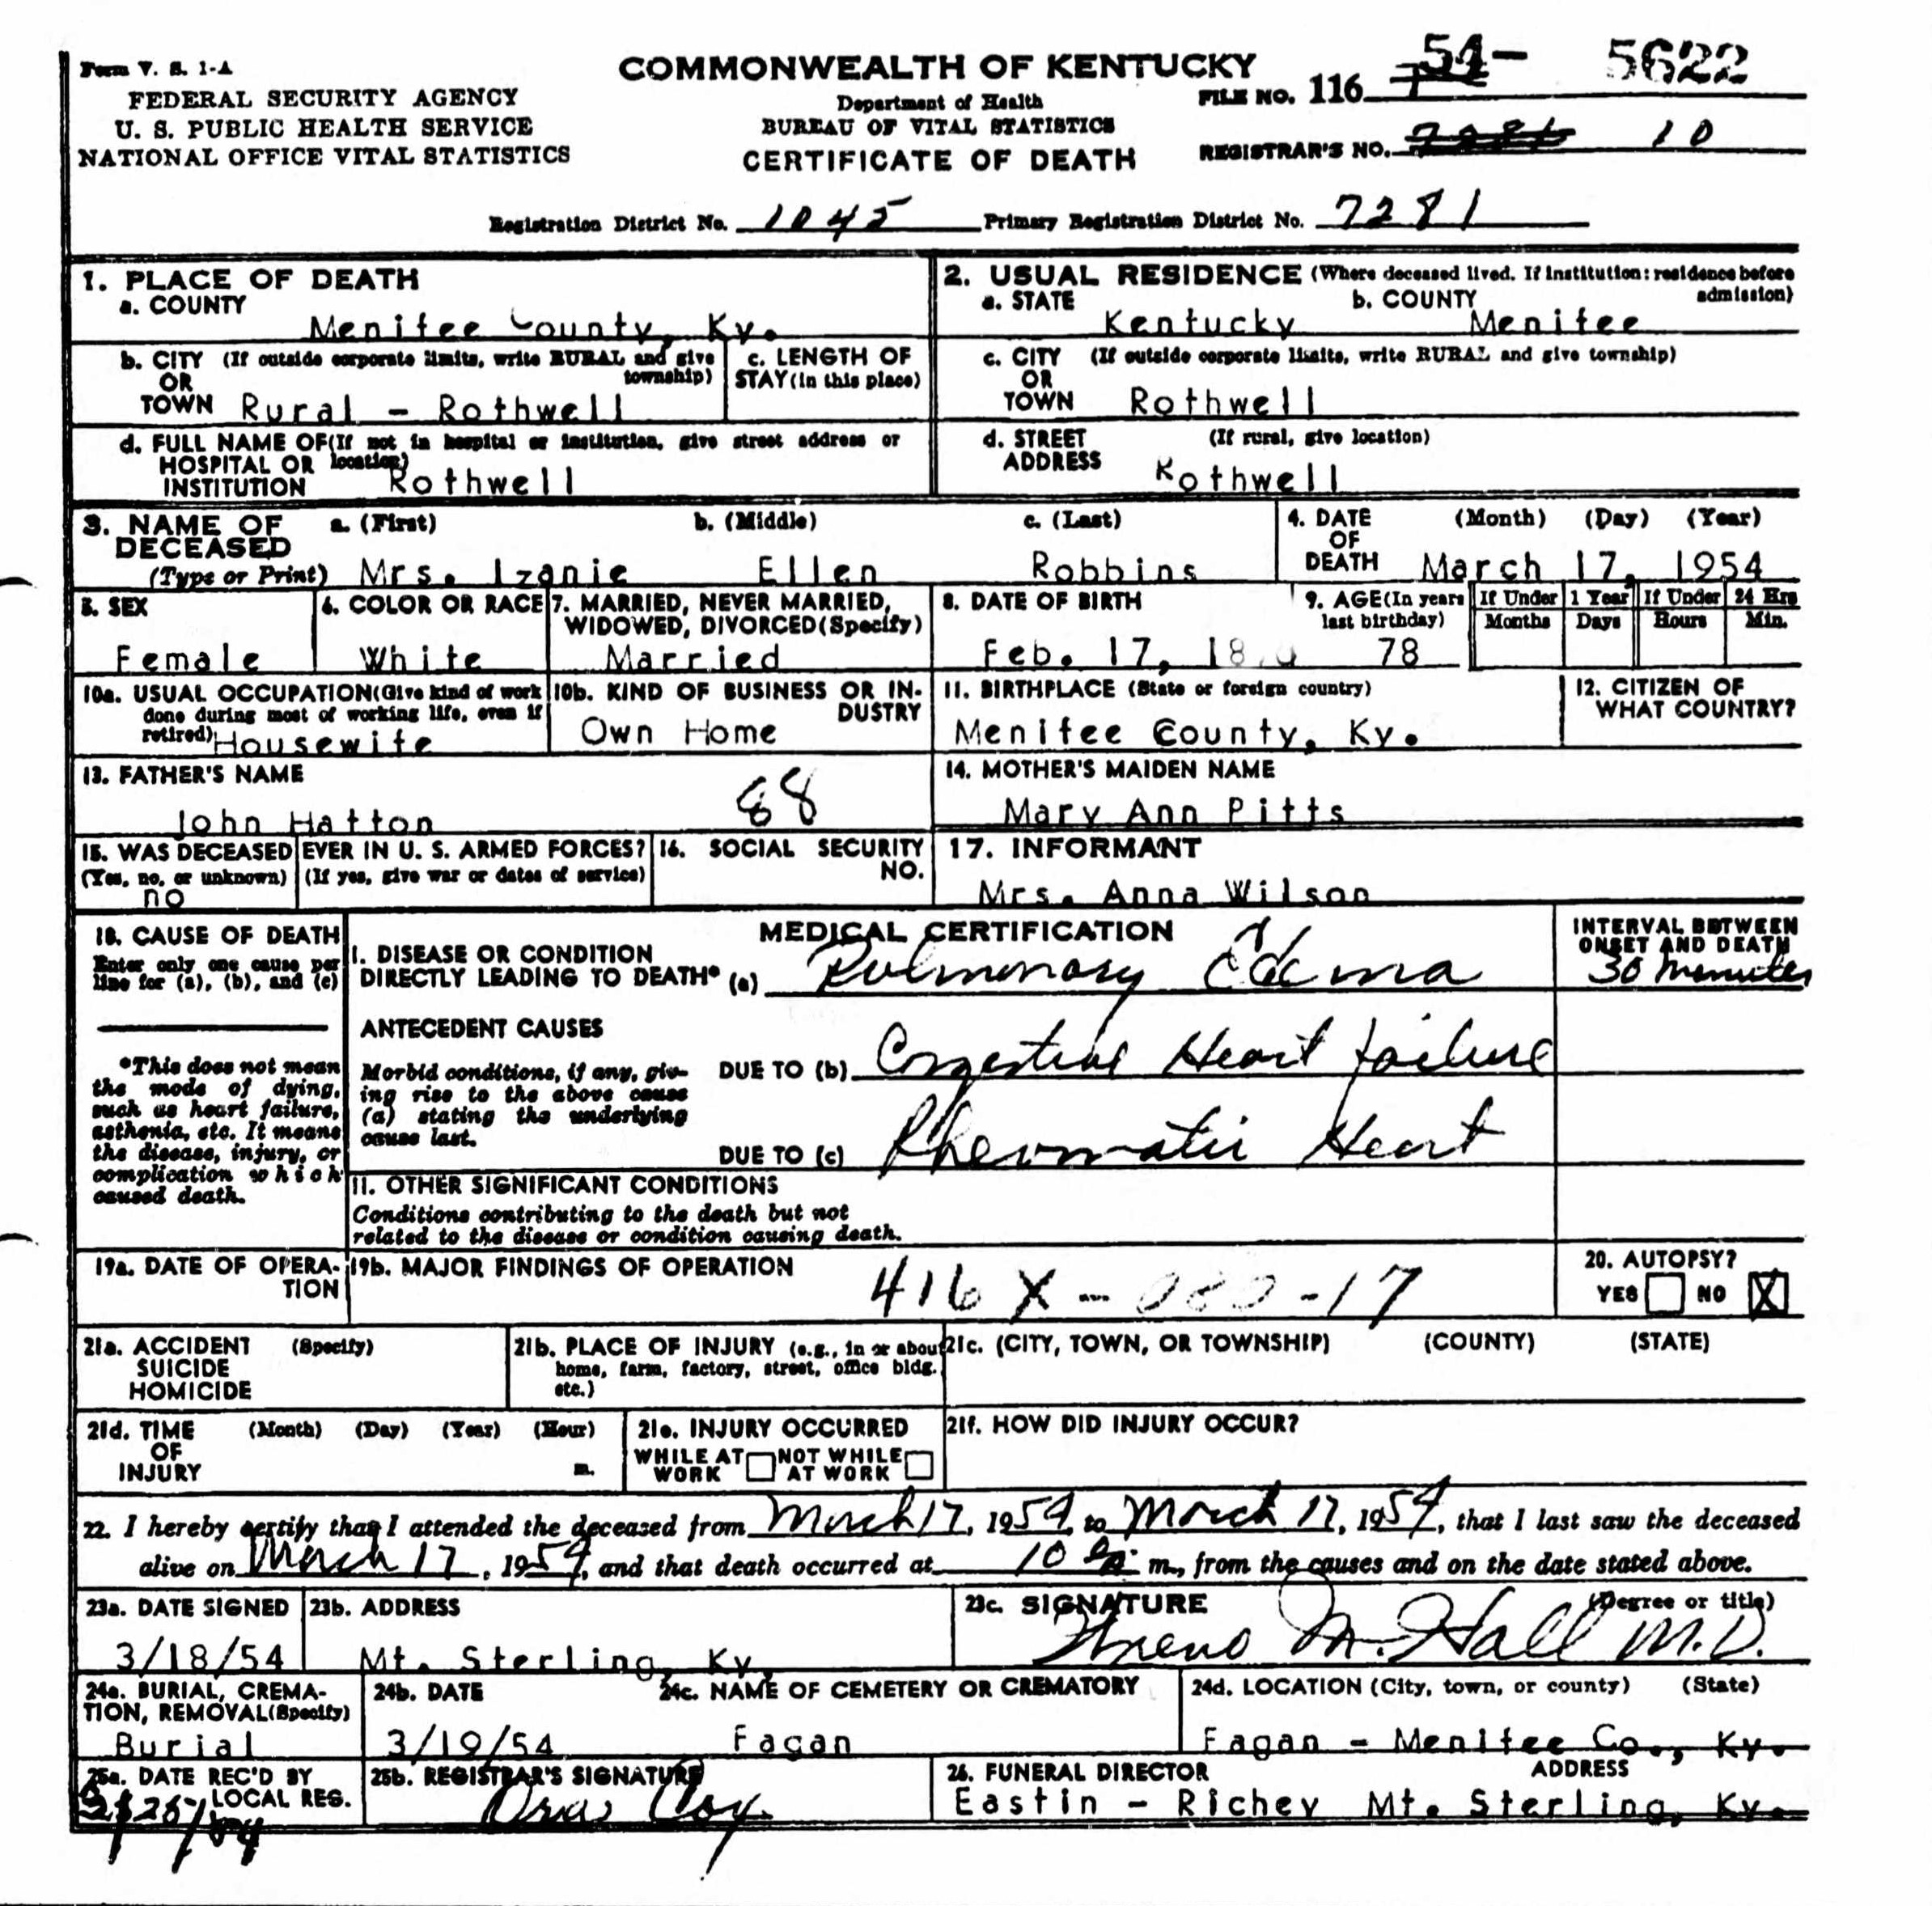 Form V. S. 1-A
FEDERAL SECURITY AGENCY
U. S. PUBLIC HEALTH SERVICE
NATIONAL OFFICE VITAL STATISTICS
COMMONWEALTH OF KENTUCKY
Department of Health
BUREAU OF VITAL STATISTICS
CERTIFICATE OF DEATH
FILE NO. 116 54- 5622
REGISTRAR'S NO. 7281 10
Registration District No. 1045 Primary Registration District No. 7281
1. PLACE OF DEATH
a. COUNTY
Menifee County, Ky.
2. USUAL RESIDENCE (Where deceased lived. If institution: residence before admission)
a. STATE b. COUNTY
Kentucky Menifee
b. CITY (If outside corporate limits, write RURAL and give township)
OR
TOWN Rural - Rothwell
c. LENGTH OF
STAY (in this place)
c. CITY (If outside corporate limits, write RURAL and give township)
OR
TOWN Rothwell
d. FULL NAME OF (If not in hospital or institution, give street address or location)
HOSPITAL OR
INSTITUTION Rothwell
d. STREET (If rural, give location)
ADDRESS Rothwell
3. NAME OF DECEASED
(Type or Print)
a. (First) b. (Middle) c. (Last)
Mrs. Izanie Ellen Robbins
4. DATE OF DEATH (Month) (Day) (Year)
March 17, 1954
5. SEX
Female
6. COLOR OR RACE
White
7. MARRIED, NEVER MARRIED,
WIDOWED, DIVORCED (Specify)
Married
8. DATE OF BIRTH
Feb. 17,
9. AGE (In years last birthday)
78
If Under 1 Year
Months Days
If Under 24 Hrs
Hours Min.
10a. USUAL OCCUPATION (Give kind of work
done during most of working life, even if
retired) Housewife
10b. KIND OF BUSINESS OR INDUSTRY
Own Home
11. BIRTHPLACE (State or foreign country)
Menifee County, Ky.
12. CITIZEN OF
WHAT COUNTRY?
13. FATHER'S NAME
John Hatton
88
14. MOTHER'S MAIDEN NAME
Mary Ann Pitts
15. WAS DECEASED EVER IN U. S. ARMED FORCES?
(Yes, no, or unknown) (If yes, give war or dates of service)
no
16. SOCIAL SECURITY
NO.
17. INFORMANT
Mrs. Anna Wilson
18. CAUSE OF DEATH
Enter only one cause per
line for (a), (b), and (c)
*This does not mean
the mode of dying,
such as heart failure,
asthenia, etc. It means
the disease, injury, or
complication which
caused death.
MEDICAL CERTIFICATION
I. DISEASE OR CONDITION
DIRECTLY LEADING TO DEATH* (a) Pulmonary Edema
INTERVAL BETWEEN
ONSET AND DEATH
30 minutes
ANTECEDENT CAUSES
Morbid conditions, if any, giv-
ing rise to the above cause
(a) stating the underlying
cause last.
DUE TO (b) Congestive Heart failure
DUE TO (c) Rheumatic Heart
II. OTHER SIGNIFICANT CONDITIONS
Conditions contributing to the death but not
related to the disease or condition causing death.
19a. DATE OF OPERA-
TION
19b. MAJOR FINDINGS OF OPERATION
416 X - 080 -17
20. AUTOPSY?
YES NO X
21a. ACCIDENT (Specify)
SUICIDE
HOMICIDE
21b. PLACE OF INJURY (e.g., in or about
home, farm, factory, street, office bldg.
etc.)
21c. (CITY, TOWN, OR TOWNSHIP) (COUNTY) (STATE)
21d. TIME (Month) (Day) (Year) (Hour)
OF
INJURY m.
21e. INJURY OCCURRED
WHILE AT WORK NOT WHILE AT WORK
21f. HOW DID INJURY OCCUR?
22. I hereby certify that I attended the deceased from March 17, 1954, to March 17, 1954, that I last saw the deceased
alive on March 17, 1954, and that death occurred at 10 m., from the causes and on the date stated above.
23a. DATE SIGNED
3/18/54
23b. ADDRESS
Mt. Sterling, Ky.
23c. SIGNATURE (Degree or title)
M. Hall M.D.
24a. BURIAL, CREMA-
TION, REMOVAL (Specify)
Burial
24b. DATE
3/19/54
24c. NAME OF CEMETERY OR CREMATORY
Fagan
24d. LOCATION (City, town, or county) (State)
Fagan - Menifee Co., Ky.
25a. DATE REC'D BY
LOCAL REG.
25b. REGISTRAR'S SIGNATURE
26. FUNERAL DIRECTOR ADDRESS
Eastin - Richey Mt. Sterling, Ky.